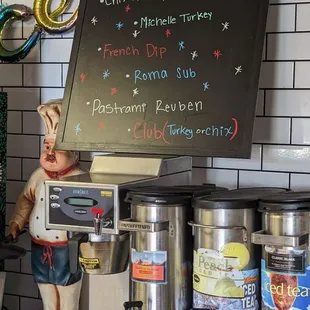 · Michelle Turkey
· French Dip
· Roma Sub
· Pastrami Reuben
· Club (Turkey or chix)
Peach
ICED TEA
ICED TEA